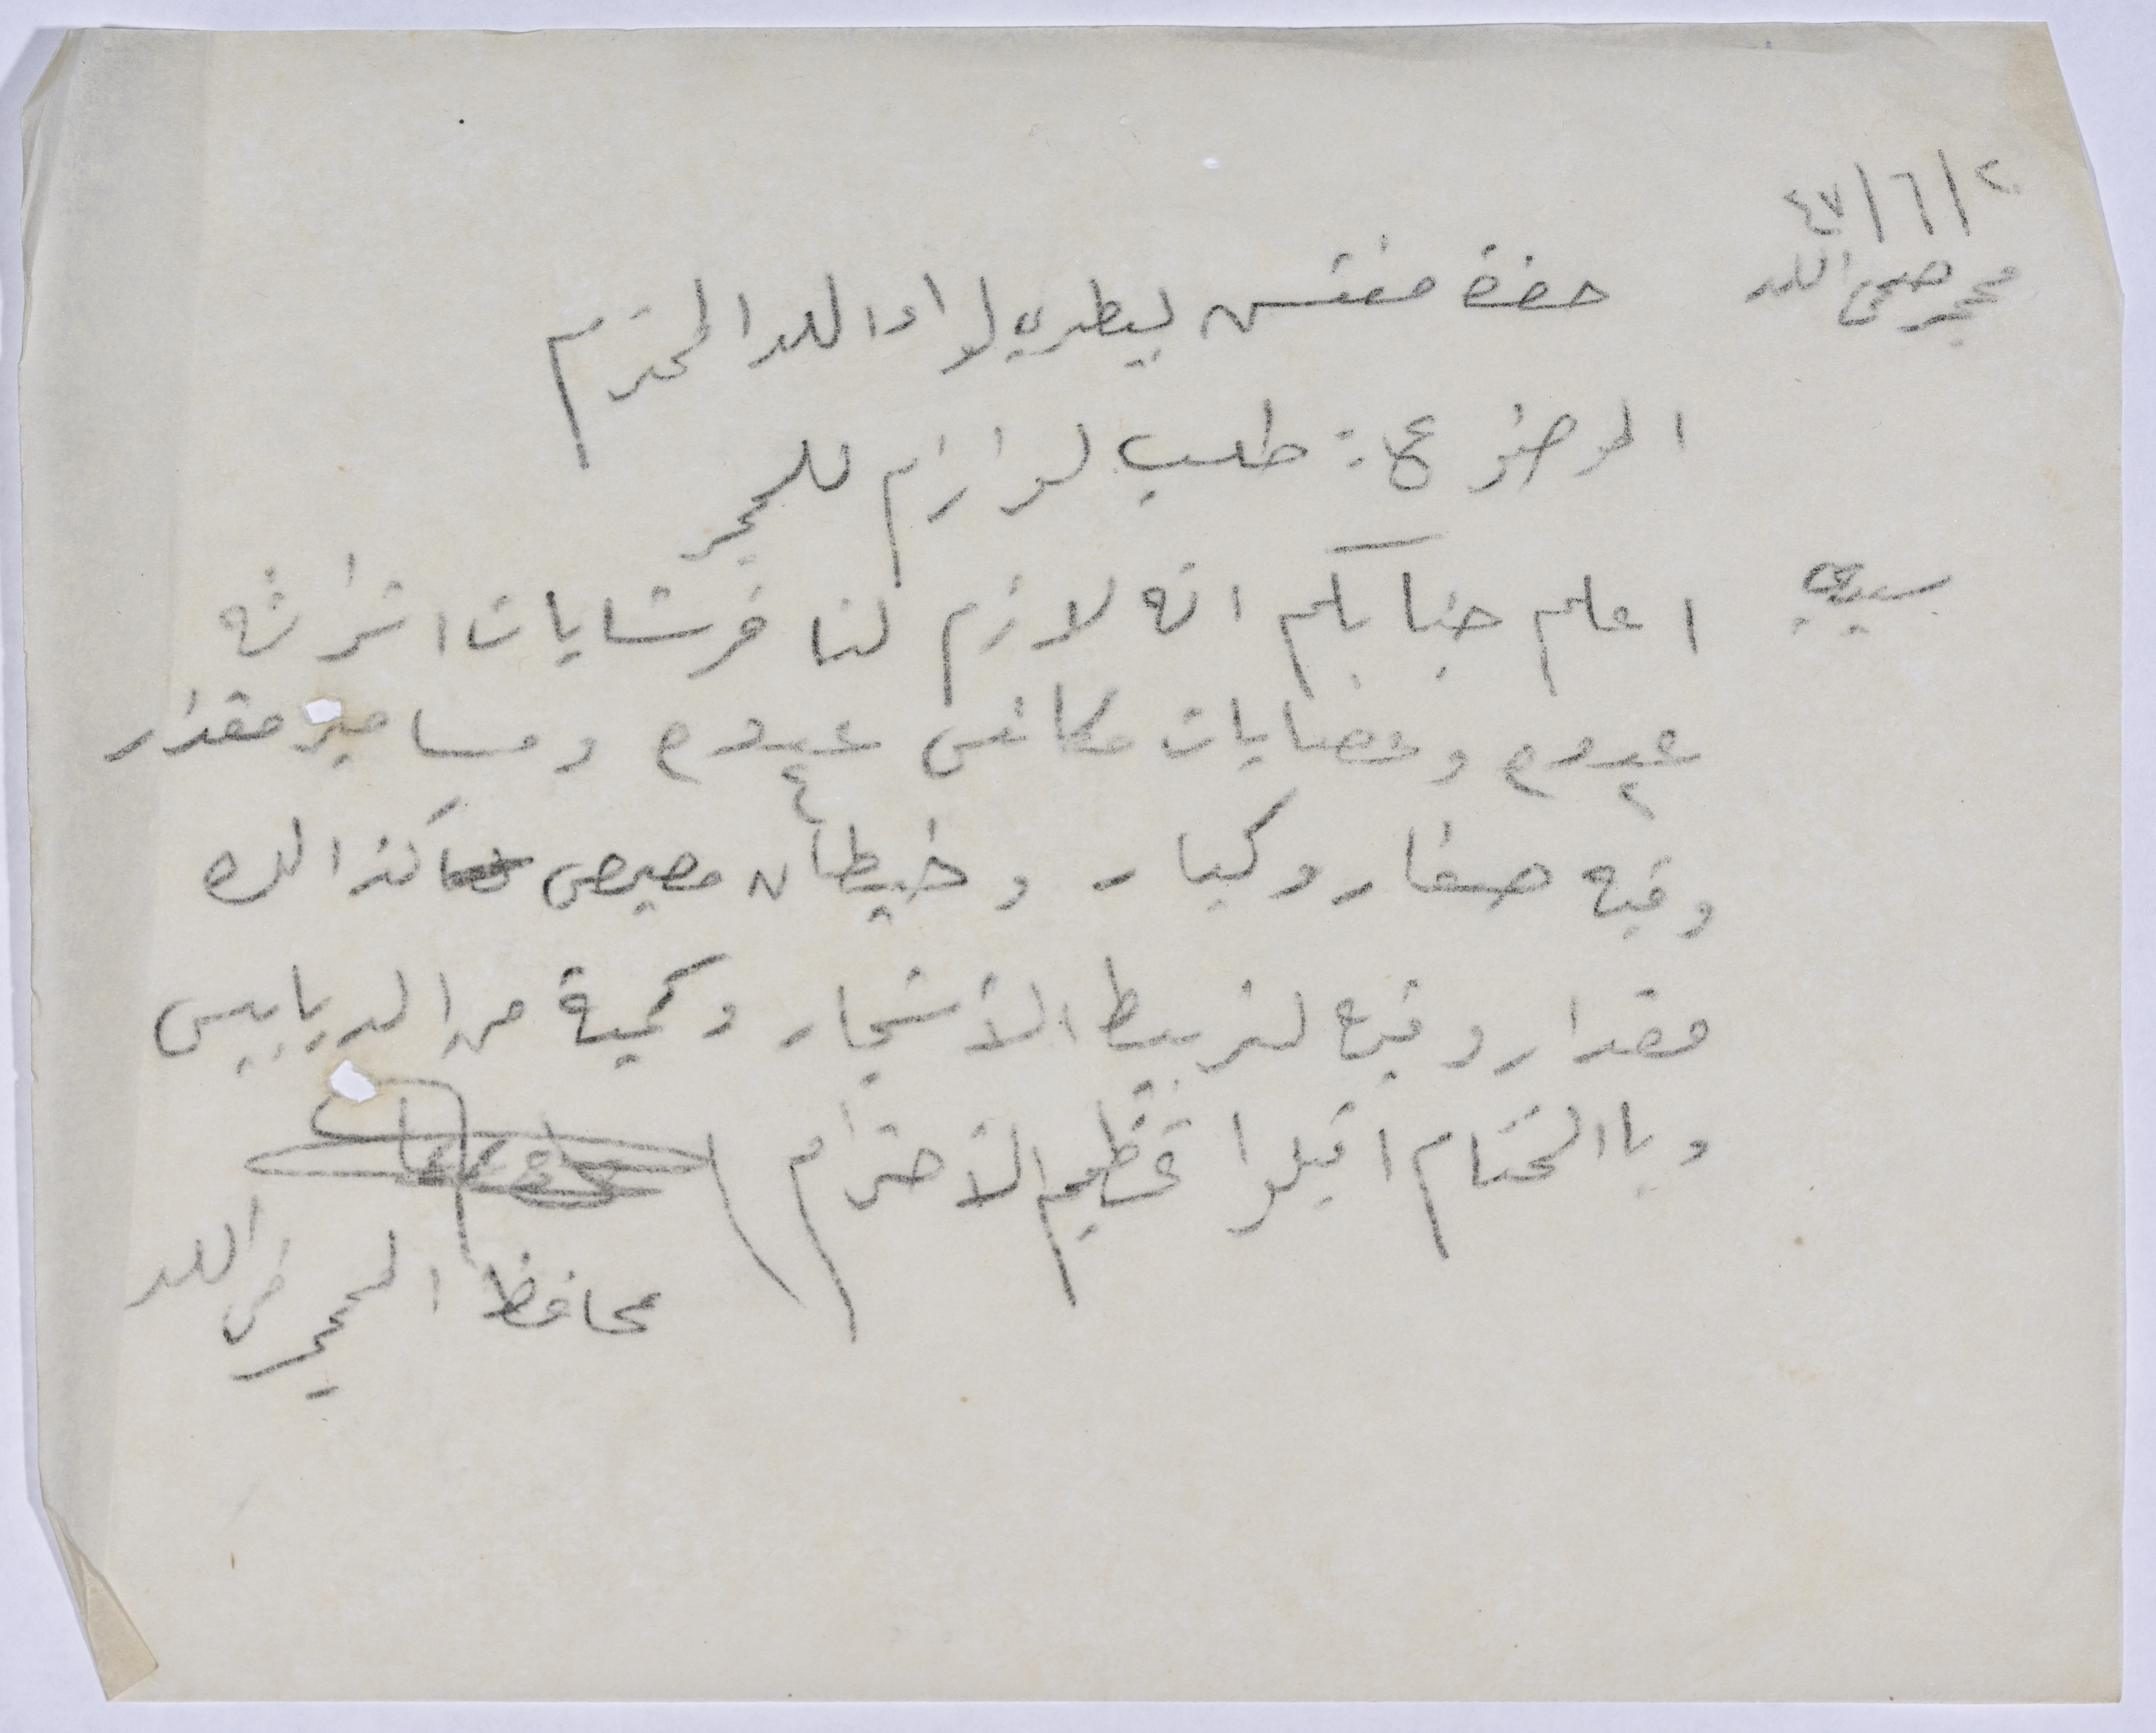 ٤٧/٦/٢
محجر صحي اللد
حضرة مفتش بيطريه لواء اللد المحترم
الموضوع: طلب لوازم للمحجر
سيدي
اعلم جنابكم انه لازم لنا فرشايات اطراشه
عدد ٢ وعضايات مكانس عدد ٤ ومسامير مقدار
وقيه صغار وكبار وخيطان مصيص كذالك
مقدار وقيه لتربيط الأشجار وكمية من الدبابيس
وبا الختام اقبلوا عظيم الأحترام
محافظ المحجر في اللد